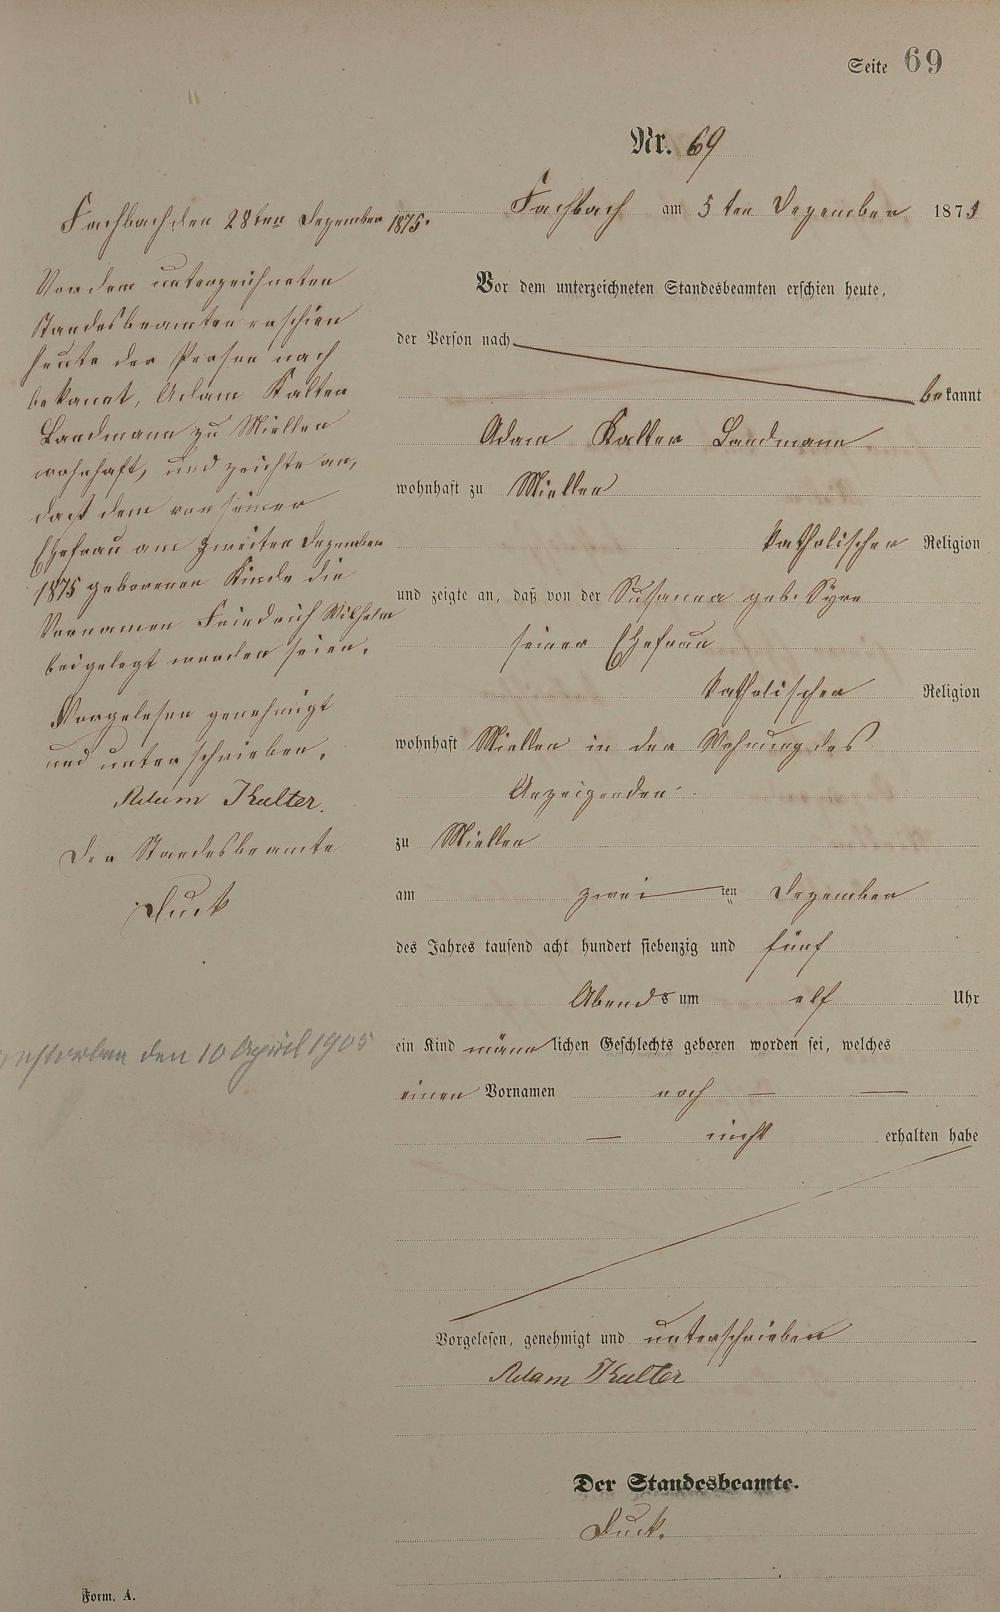 Seite 69
Nr. 69
Fachbach am 5 ten Dezember 1875
Vor dem unterzeichneten Standesbeamten erschien heute,
der Person nach
bekannt
Adam Kalter Landmann
wohnhaft zu Miellen
katholischer Religion
und zeigte an, daß von der Susanna geb. Syre
seiner Ehefrau
katholischer Religion
wohnhaft Miellen in der Wohnung des
Anzeigenden
zu Miellen
am zwei ten Dezember
des Jahres tausend acht hundert siebenzig und fünf
Abends um elf Uhr
ein Kind männlichen Geschlechts geboren worden sei, welches
einen Vornamen noch —  —
— nicht erhalten habe
Vorgelesen, genehmigt und unterschrieben
Adam Kalter
Der Standesbeamte.
Duck.
Fachbach den 28ten Dezember 1875.
Vor dem unterzeichneten
Standesbeamten erschien
heute der Person nach
bekannt, Adam Kalter
Landmann zu Miellen
wohnhaft, und zeichte an,
daß dem von seiner
Ehefrau am zweiten Dezember
1875 geborenen Kinde die
Vornamen Friedrich Wilhelm
beigelegt worden seien.
Vorgelesen genehmigt
und unterschrieben.
Adam Kalter.
Der Standesbeamte
Duck
gestorben den 10 April 1905
Form. A.